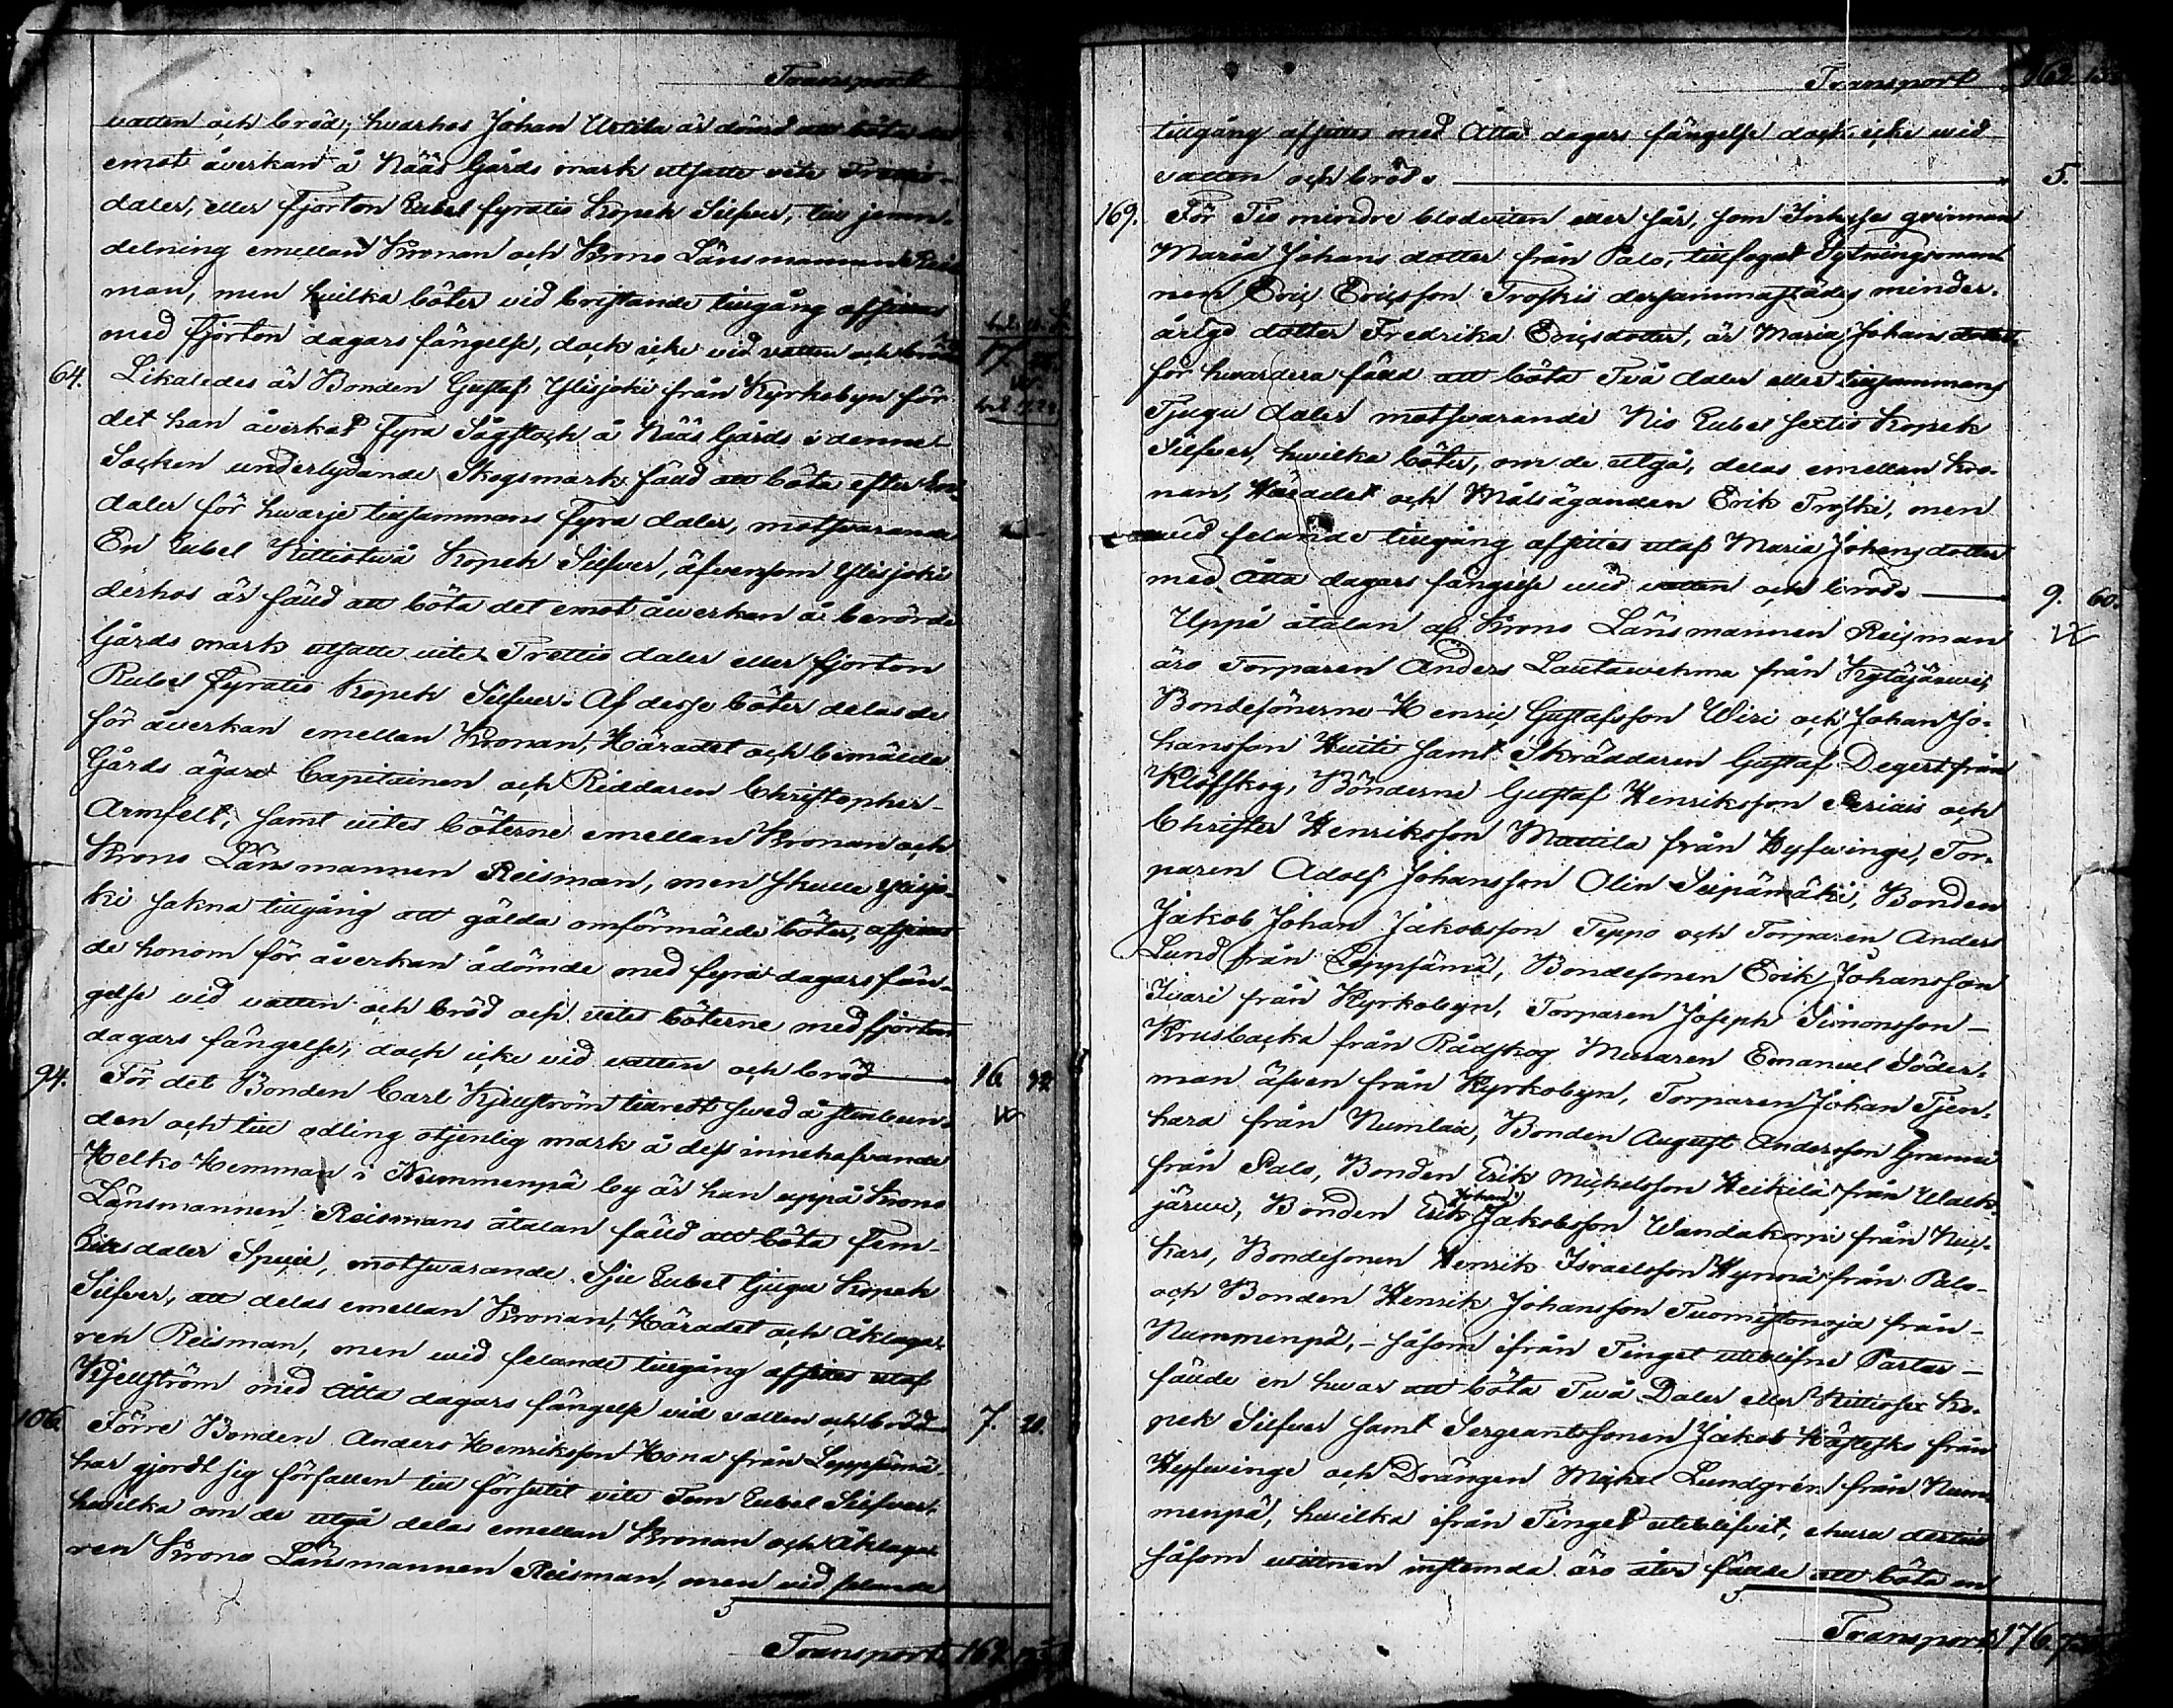 Transport
vatten och bröd; hvarhos Johan Uotila är dömd att böta det
emot åverkan å Nääs Gårds mark utsatte vite Trettio
daler, eller fjorton Rubel fyratio Kopek Silfver, till jemn
delning emellan Kronan och Krono Länsmannen Reis
man, men hvilka böter vid bristande tillgång afsittas
med fjorton dagars fängelse, dock icke vid vatten och bröd
17.
64. Likaledes är Bonden Gustaf Ylisjoki från Kyrkobyn för
det han åverkat fyra Sågstock å Nääs Gårds i denna
Socken underlydande Skogsmark fäld att böta efter En
daler för hwarje tillsammans fyra daler, motsvarande
En Rubel Nittiotwå Kopek Silfver, äfvensom Ylisjoki
derhos är fäld att böta det emot åwerkan å berörde
Gårds mark utsatte vite Trettio daler eller fjorton
Rubel fyratio Kopek Silfver. Af desse böter delas de
för åverkan emellan Kronan, Häradet och bemälde
Gårds ägare Capitainen och Riddaren Christopher
Armfelt, samt vites böterne emellan Kronan och
Krono Länsmannen Reisman, men skulle Ylisjo-
ki sakna tillgång att gälda omförmälde böter, afsittas
de honom för åverkan ådömde med fyra dagars fän-
gelse vid vatten och bröd och vites böterne med fjorton
dagars fängelse, dock icke vid vatten och bröd 16 32
94. För det Bonden Carl Kjellström tilredt swed å stenbun-
den och till odling otjenlig mark å dess innehafvande
Helko Hemman i Nummenpä by är han uppå Krono
Länsmannen Reismans åtalan fäld att böta fem
Riksdaler Specie, motsvarande Sju Rubel tjugu Kopek
Silfver, att delas emellan Kronan, Häradet och Åklaga-
ren Reisman, men wid felande tillgång afsittes utaf
Kjellström med Åtta dagars fängelse vid vatten och bröd 7. 20.
106. Förre Bonden Anders Henriksson Hona från Leppsämä
har gjordt sig förfallen till försutit vite Fem Rubel Silfver,
hwilka om de utgå delas emellan Kronan och Åklaga-
ren Krono Länsmannen Reisman, men vid felande
Transport 162.
Transport 162
tillgång afsittes med Åtta dagars fängelse dock icke wid
vatten och bröd. 5.
169. För Tio mindre blodviten eller sår, som Inhyses qvinnan
Maria Johans dotter från Palo, tillfogat Sytningsman-
nen Eric Ericsson Troskis dersammastädes minder-
åriga dotter Fredrika Ericsdotter, är Maria Johans dotter,
för hwardera fäld att böta Två daler eller tillsammans
Tjugu daler motsvarande Nio Rubel sextio Kopek
Silfver, hwilka böter, om de utgå, delas emellan Kro-
nan, Häradet och Målsäganden Erik Troski, men
wid felande tillgång afsittes utaf Maria Johans dotter
med Åtta dagars fängelse wid vatten och bröd. 9. 60.
Uppå åtalan af Krono Länsmannen Reisman
äro Torparen Anders Lautawehma från Kytäjärwi,
Bondesönerne Henric Gustafsson Wiri och Johan Jo-
hansson Huiti samt Skräddaren Gustaf Degert från
Klöfskog, Bönderne Gustaf Henriksson och
Christer Henriksson Mattila från Hyfvinge, Tor-
paren Adolf Johansson Olin Seipämäki, Bonden
Jakob Johan Jakobsson Teppo och Torparen Anders
Lund från Leppsämä, Bondesonen Erik Johansson
Iwari från Kyrkobyn, Torparen Joseph Simonsson
Krusbacka från Rådskog Muraren Emanuel Söder-
man äfven från Kyrkobyn, Torparen Johan Tjen-
hara från Numlax, Bonden August Andersson Granni
från Palo, Bonden Erik Michelsson Heikilä från Walk-
järwi, Bonden Erik Johan Jakobsson Wandakorpi från Nuc-
kars, Bondesonen Henrik Israelsson Hynnä från Palo
och Bonden Henrik Johansson Tuomistonoja från
Nummenpä, – såsom ifrån Tinget uteblifne Parter –
fälde en hwar att böta Twå Daler eller Nittiosex Ko-
pek Silfver samt Sergeantsonen Jakob Hästesko från
Hyfvinge och Drängen Michel Lundgrén från Num-
menpä, hwilka ifrån Tinget uteblifvit, ehuru dertill
såsom wittnen instemda äro åter fälde att böta en
Transport 176.